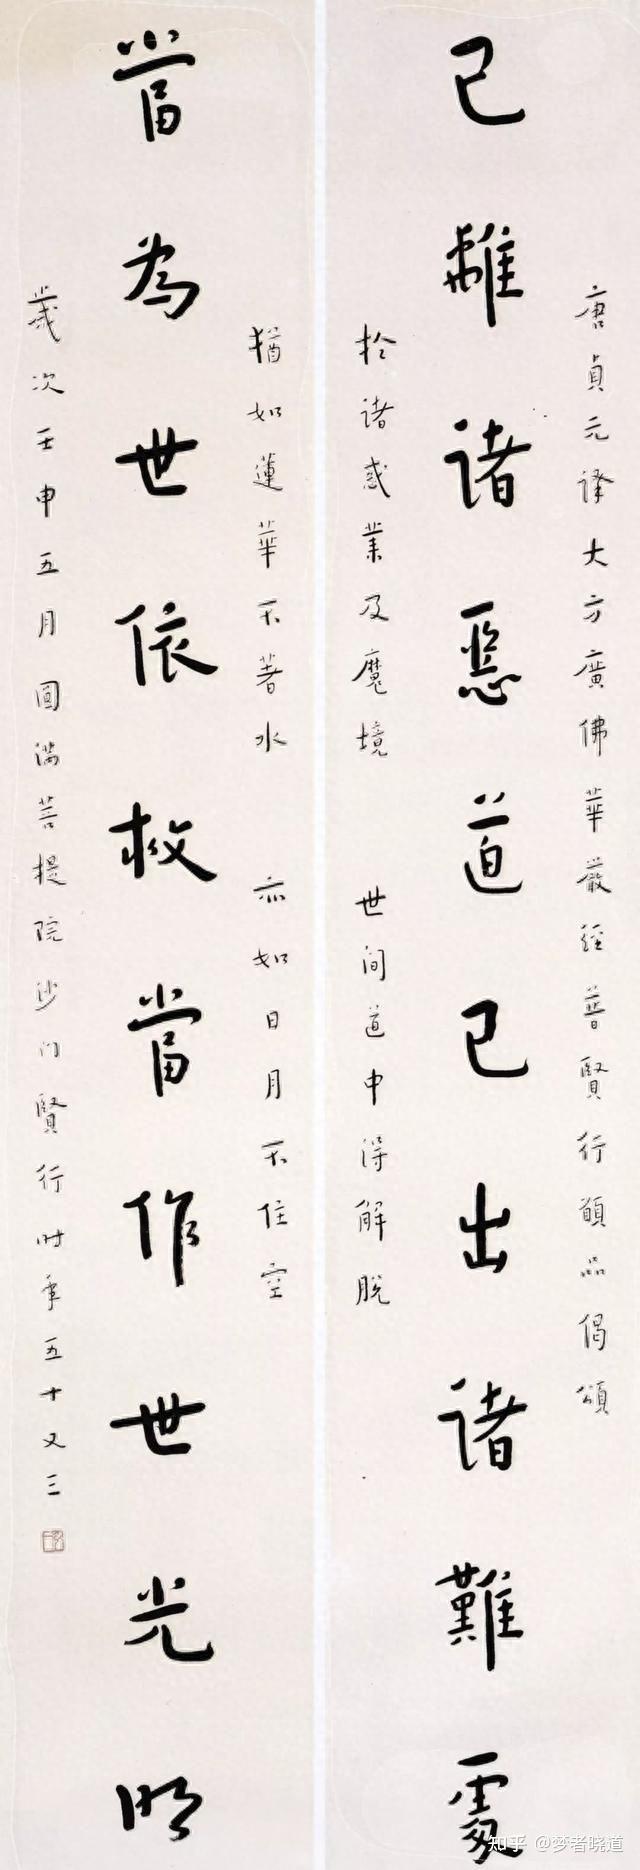 唐貞元譯大方廣佛華嚴經普賢行願品偈頌
已離諸惡道已出諸難處
於諸惑業及魔境 世間道中得解脫
猶如蓮華不著水 亦如日月不住空
當為世依救當作世光明
歲次壬申五月圓滿菩提院沙門賢行時年五十又三
知乎 @梦者晓道